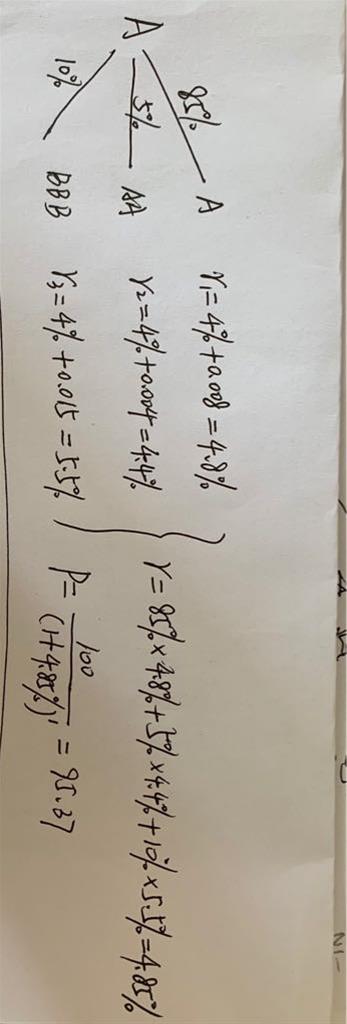 85% A r₁=4%+0.008=4.8%
A 5% AA r₂=4%+0.004=4.4% r=85%×4.8%+5%×4.4%+10%×5.5%=4.85%
10% BBB r₃=4%+0.015=5.5% P=100/(1+4.85%)¹=95.37